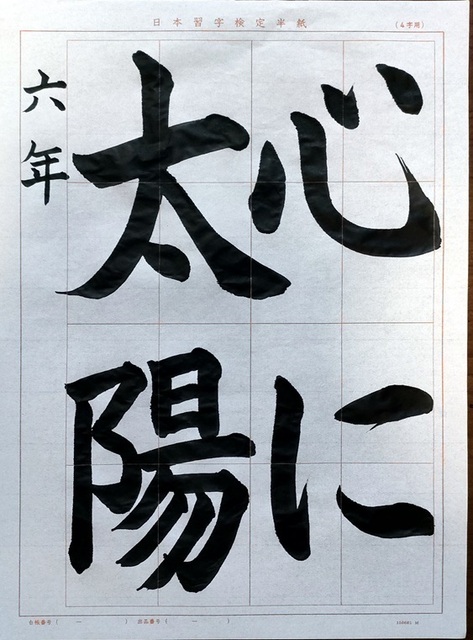 日本習字検定半紙
(4字用)
心に
太陽
六年
会報番号( ー )
出品番号( ー )